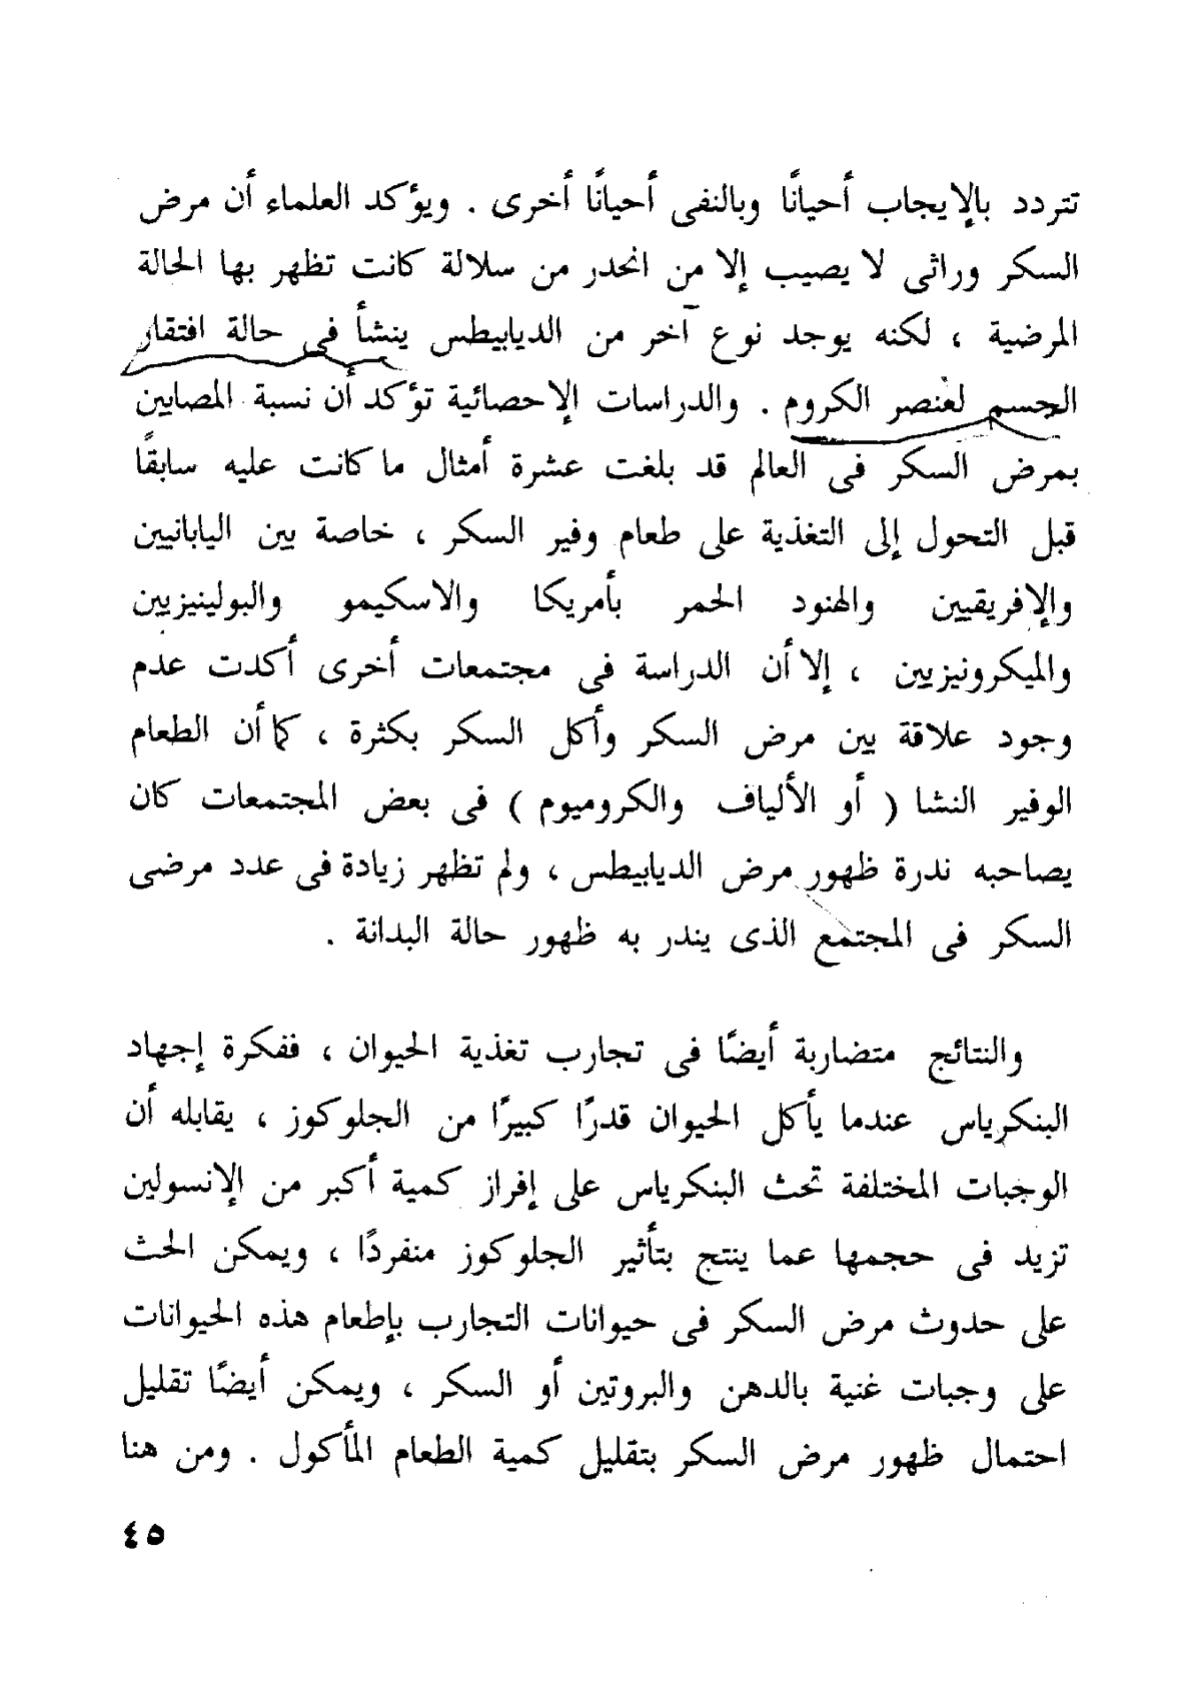 تتردد بالإيجاب أحيانًا وبالنفى أحيانًا أخرى . ويؤكد العلماء أن مرض
السكر وراثى لا يصيب إلا من انحدر من سلالة كانت تظهر بها الحالة
المرضية ، لكنه يوجد نوع آخر من الديابيطس ينشأ فى حالة افتقار
الجسم لعنصر الكروم . والدراسات الإحصائية تؤكد أن نسبة المصابين
بمرض السكر فى العالم قد بلغت عشرة أمثال ما كانت عليه سابقًا
قبل التحول إلى التغذية على طعام وفير السكر ، خاصة بين اليابانيين
والإفريقيين والهنود الحمر بأمريكا والاسكيمو والبولينيزيين
والميكرونيزيين ، إلا أن الدراسة فى مجتمعات أخرى أكدت عدم
وجود علاقة بين مرض السكر وأكل السكر بكثرة ، كما أن الطعام
الوفير النشا ( أو الألياف والكروميوم ) فى بعض المجتمعات كان
يصاحبه ندرة ظهور مرض الديابيطس ، ولم تظهر زيادة فى عدد مرضى
السكر فى المجتمع الذى يندر به ظهور حالة البدانة .
والنتائج متضاربة أيضًا فى تجارب تغذية الحيوان ، ففكرة إجهاد
البنكرياس عندما يأكل الحيوان قدرًا كبيرًا من الجلوكوز ، يقابله أن
الوجبات المختلفة تحث البنكرياس على إفراز كمية أكبر من الإنسولين
تزيد فى حجمها عما ينتج بتأثير الجلوكوز منفردًا ، ويمكن الحث
على حدوث مرض السكر فى حيوانات التجارب بإطعام هذه الحيوانات
على وجبات غنية بالدهن والبروتين أو السكر ، ويمكن أيضًا تقليل
احتمال ظهور مرض السكر بتقليل كمية الطعام المأكول . ومن هنا
٤٥